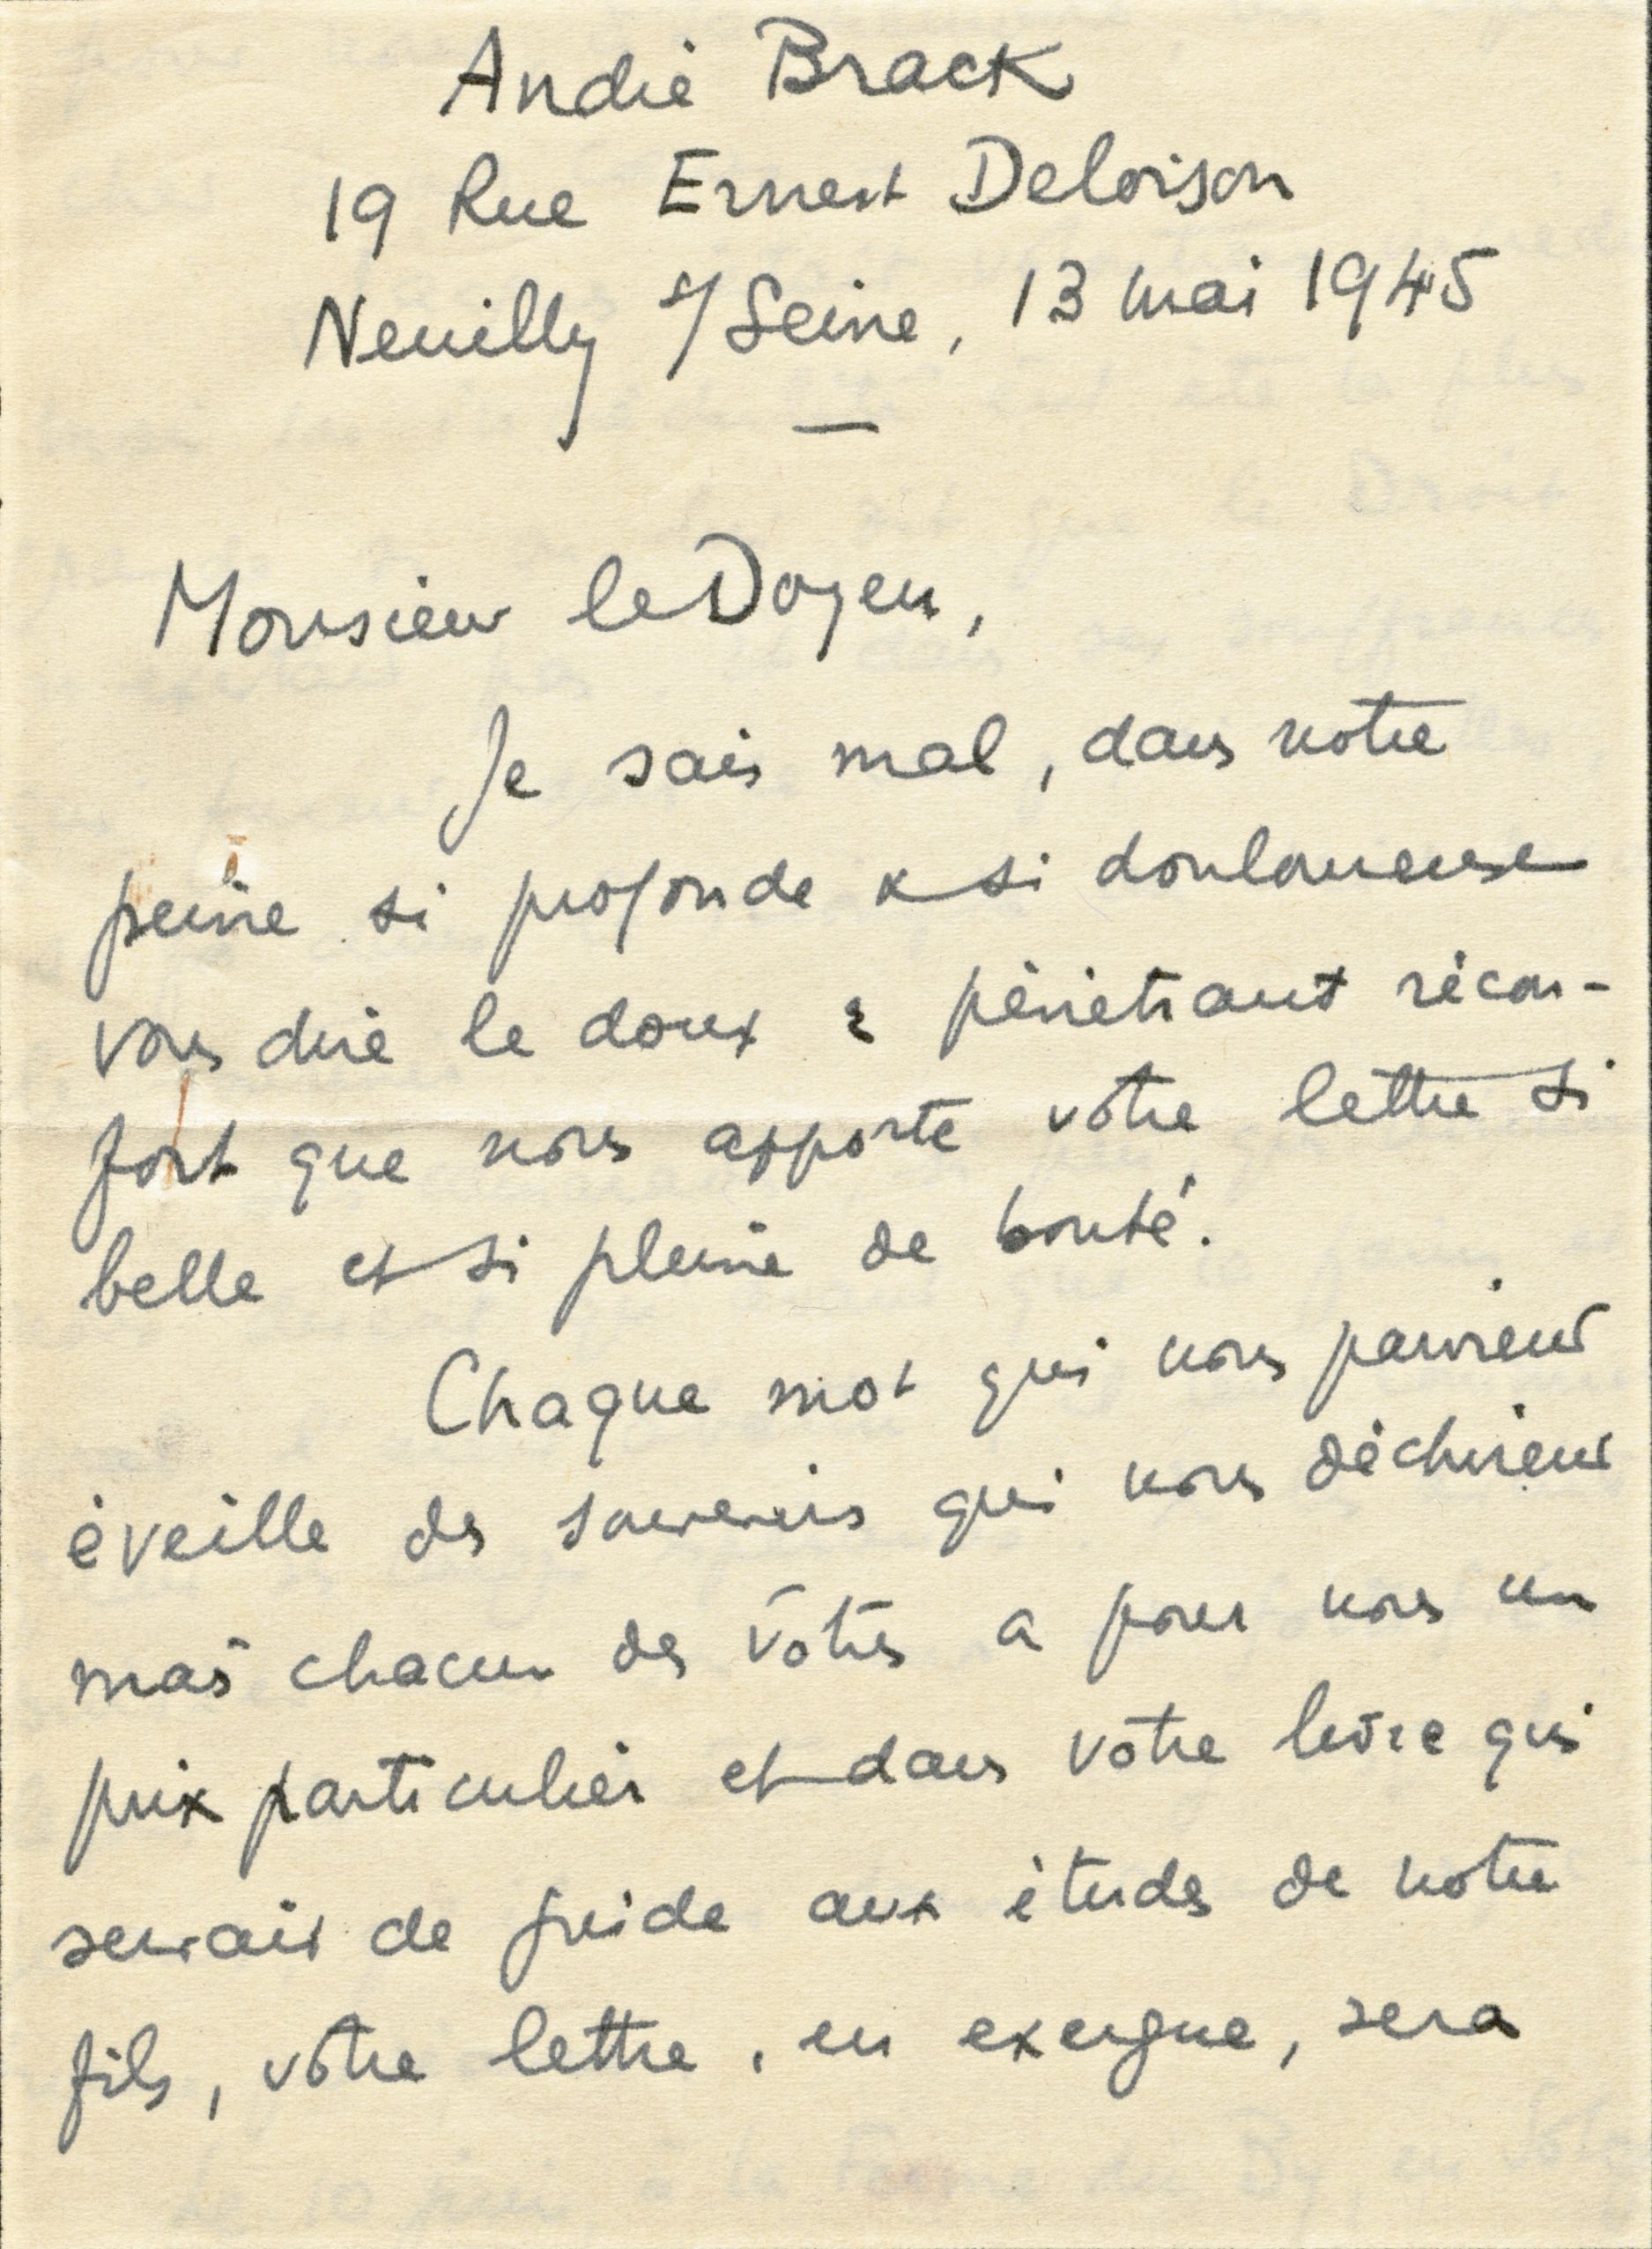 André Brack
19 Rue Ernest Deloison
Neuilly s/Seine, 13 mai 1945
—
Monsieur le Doyen,
Je sais mal, dans notre
peine si profonde & si douloureuse
vous dire le doux & pénétrant récon-
fort que nous apporte votre lettre si
belle et si pleine de bonté.
Chaque mot qui nous parvient
éveille des souvenirs qui nous déchirent
mais chacun des vôtres a pour nous un
prix particulier et dans votre livre qui
servait de guide aux études de notre
fils, votre lettre, en exergue, sera